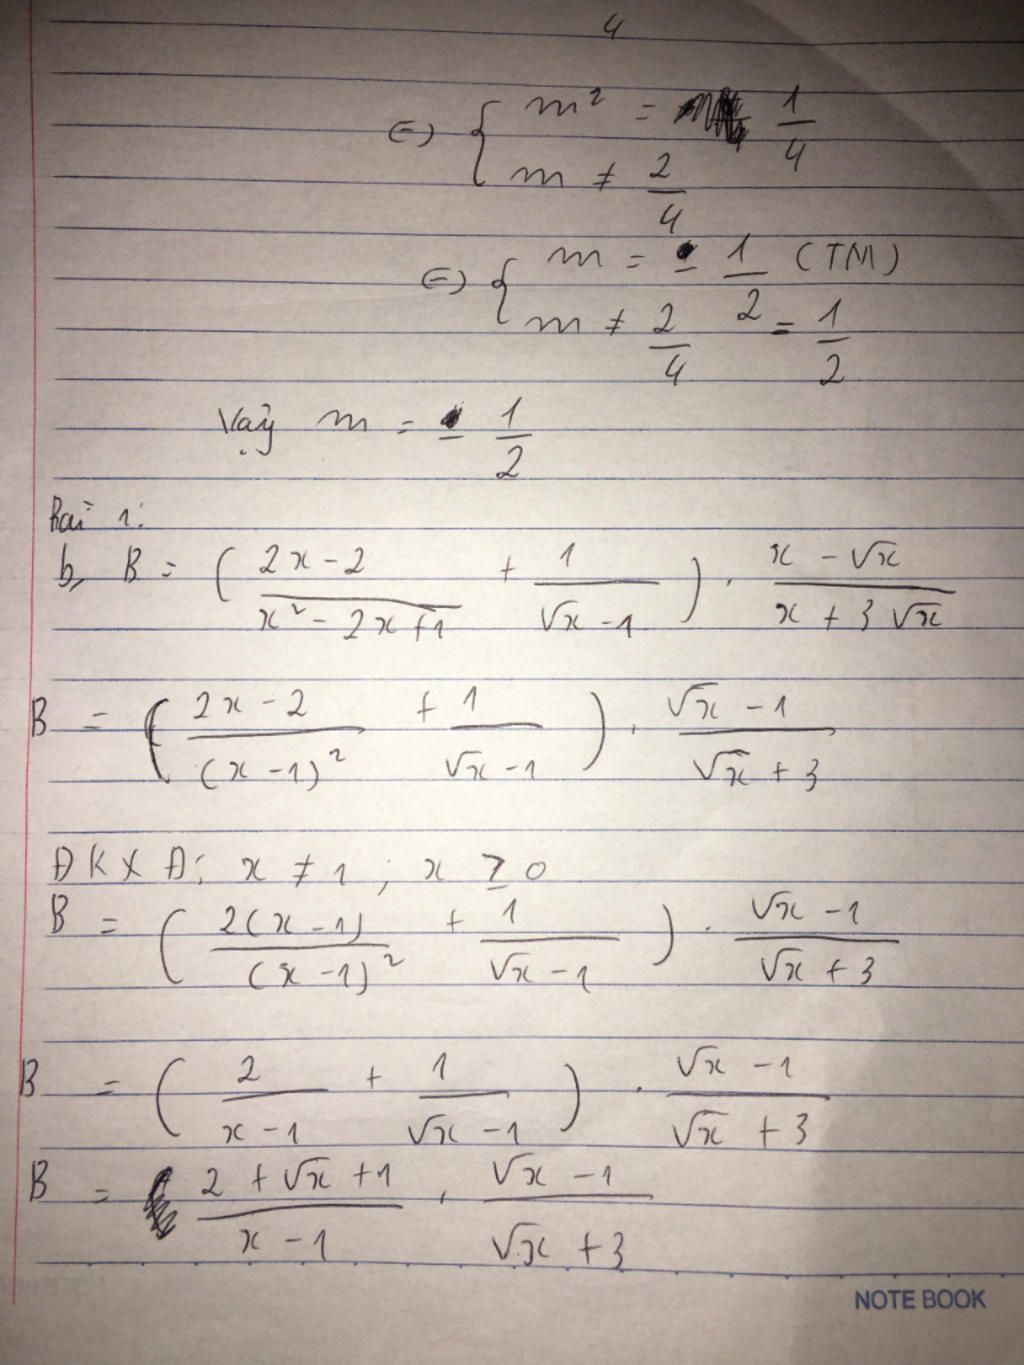 4
⇔ { m² = 1/4
m ≠ 2/4
⇔ { m = - 1/2 (TM)
m ≠ 2/4 = 1/2
Vậy m = - 1/2
Bài 1:
b, B = ( (2x - 2)/(x² - 2x + 1) + 1/(√x - 1) ) . (x - √x)/(x + 3√x)
B = ( (2x - 2)/(x - 1)² + 1/(√x - 1) ) . (√x - 1)/(√x + 3)
ĐKXĐ: x ≠ 1 ; x ≥ 0
B = ( 2(x - 1)/(x - 1)² + 1/(√x - 1) ) . (√x - 1)/(√x + 3)
B = ( 2/(x - 1) + 1/(√x - 1) ) . (√x - 1)/(√x + 3)
B = (2 + √x + 1)/(x - 1) . (√x - 1)/(√x + 3)
NOTE BOOK